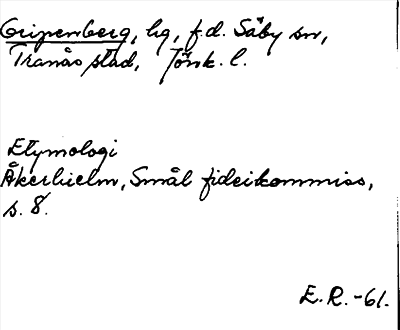 Gripenberg, hg, f.d. Säby sn,
Tranås stad, Jönk. l.
Etymologi
Åkerhielm, Smål fideikommiss,
s. 8.
E.R. -61.